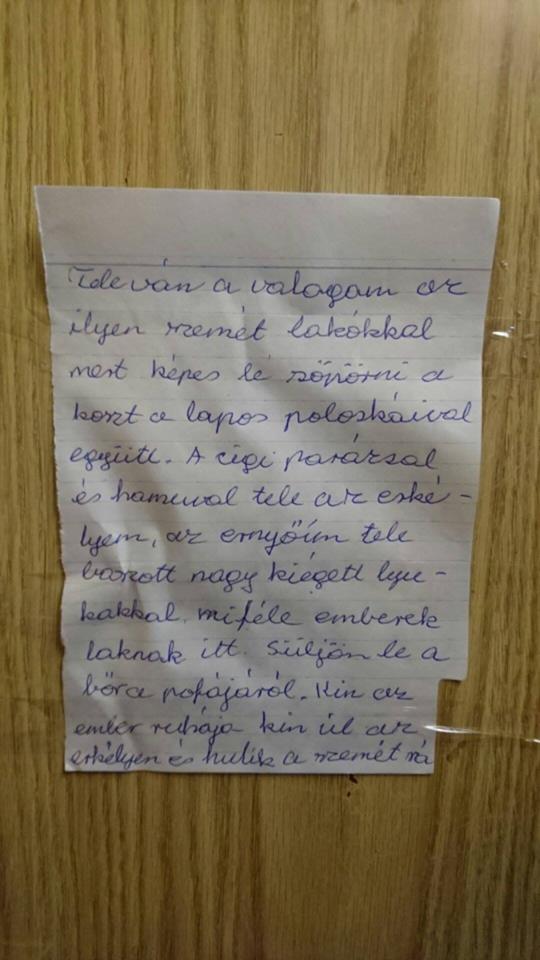 Tele ván a valagam az
ilyen szemét lakókkal
mert képes lé söpörni a
koszt a lapos poloskáival
együtt. A cigi parázsal
és hamuval tele az erké-
lyem, az ernyőim tele
baszott nagy kiégett lyu-
kakkal, miféle emberek
laknak itt. Süljön le a
bőr a pofájáról. Kin az
ember ruhája kin ül az
erkélyen és hullik a szemét rá